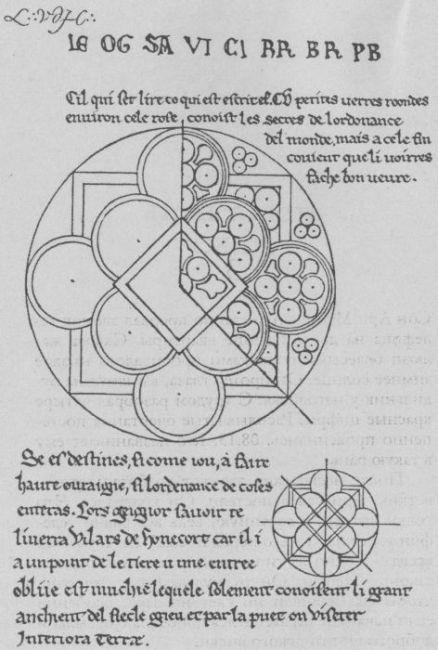 LE OG SA VI CI RR BR PB
Cil qui set lire co qui est escrit es. CV petites verres roondes
environ cele rose, conoist les secres de lordonance
del monde, mais a cele fin
covient que li voirres
face bon uevre.
Se es destines, si come iou, a faire
haute ouraigne, si lordenance de coses
enteras. Lors gignor savoir te
liverra Vilars de Honecort car il i
a un point de le tiere u une entree
obliie est muchie lequele solement conoisent li grant
anchien del siecle griu et par la puet on visiter
Interiora Terræ.